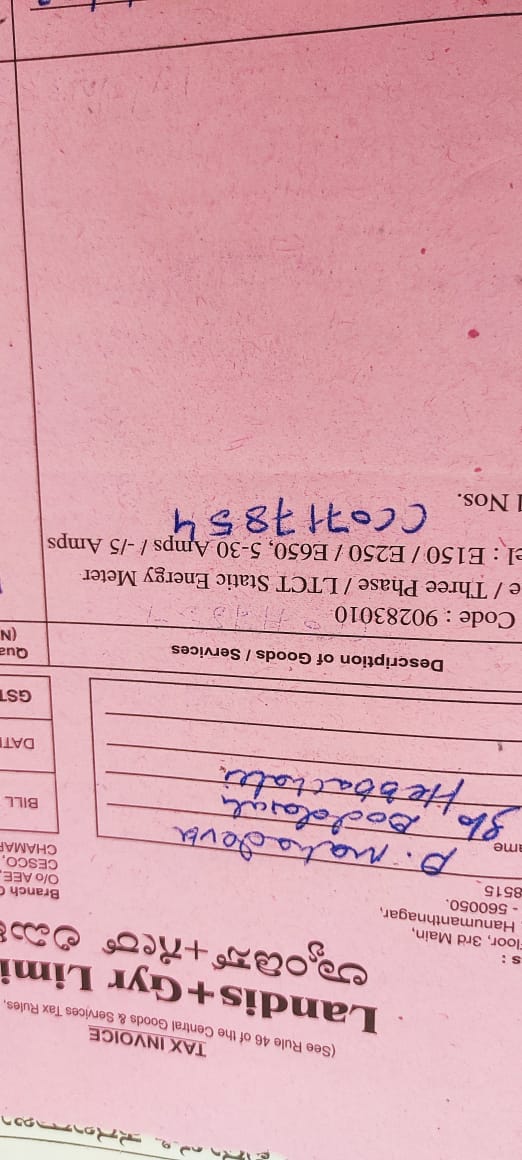 TAX INVOICE
(See Rule 46 of the Central Goods & Services Tax Rules,
Landis+Gyr Limi
ಲ್ಯಾಂಡಿಸ್+ಗೀರ್
s :
Floor, 3rd Main,
Hanumanthnagar,
- 560050.
8515
Branch
O/o AEE,
CESCO,
CHAMA
ame
P. mahadeva
S/o Doddaiah
Hebbahalli
BILL
DATE
GST
Description of Goods / Services
Qua
(N
Code : 90283010
e / Three Phase / LTCT Static Energy Meter
el : E150 / E250 / E650, 5-30 Amps / -/5 Amps
CC0717854
l Nos.